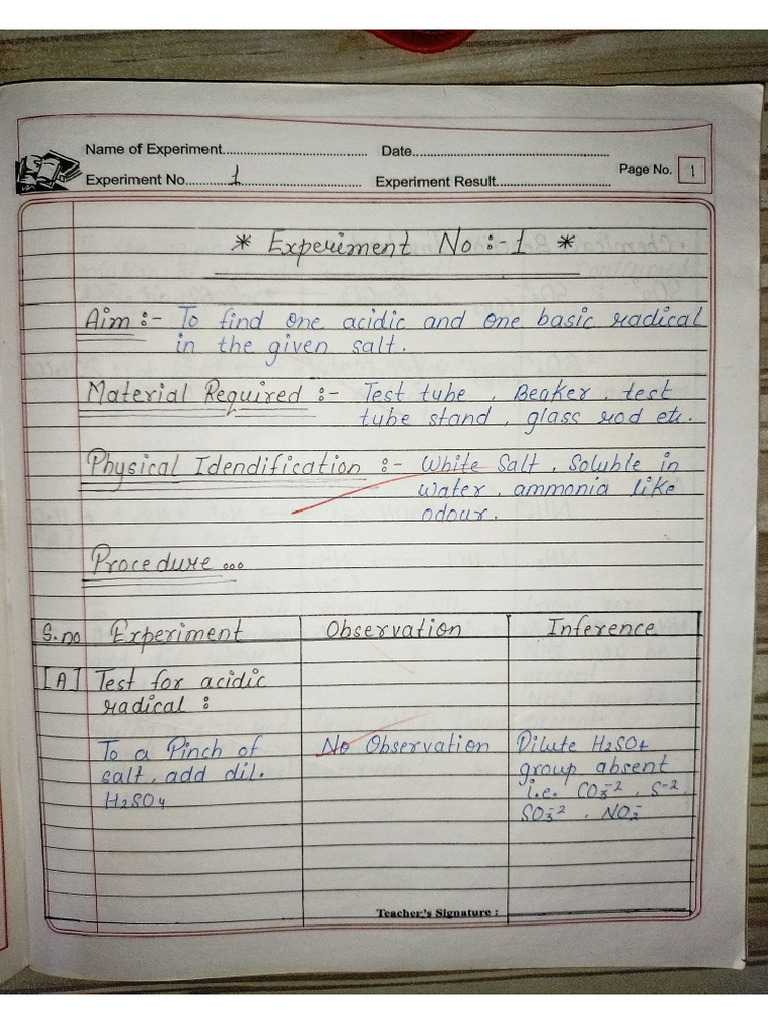 Name of Experiment............ Date............
Experiment No. 1 Experiment Result............ Page No. 1
* Experiment No :- 1 *
Aim :- To find one acidic and one basic radical
in the given salt.
Material Required :- Test tube , Beaker , test
tube stand , glass rod etc.
Physical Idendification :- White Salt , Soluble in
water , ammonia like
odour.
Procedure ...
S.no Experiment Observation Inference
[A] Test for acidic
radical :
To a Pinch of No Observation Dilute H2SO4
salt, add dil. group absent
H2SO4 i.e. CO3-2 , S-2,
SO3-2 , NO2-
Teacher's Signature :